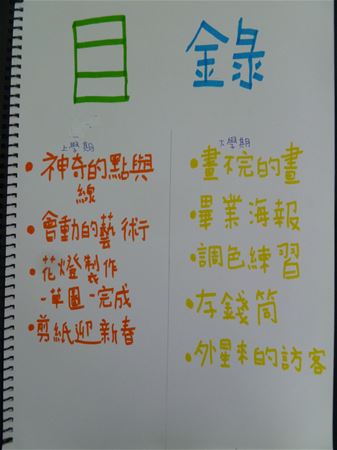 目錄
上學期
•神奇的點與
線
•會動的藝術行
•花燈製作
-草圖-完成
•剪紙迎新春
下學期
•畫不完的畫
•畢業海報
•調色練習
•存錢筒
•外星來的訪客